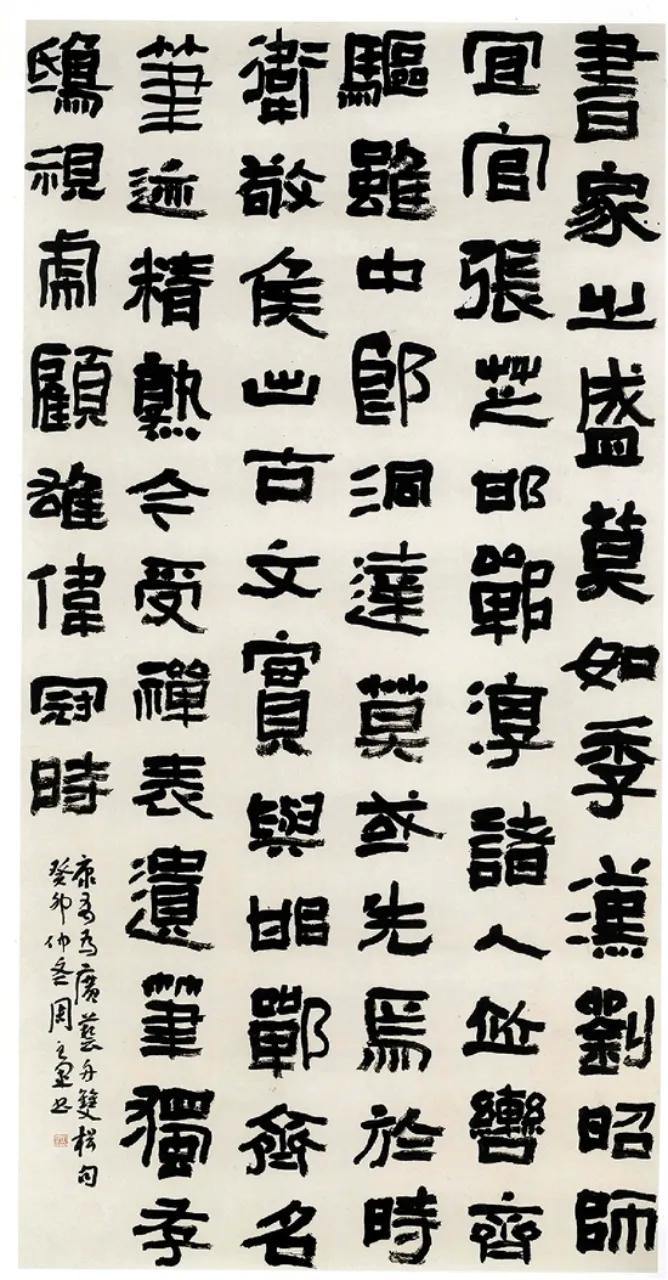 書家之盛莫如季漢劉昭師
宜官張芝邯鄲淳諸人並轡齊
驅雖中郎洞達莫或先焉於時
衛敬侯之古文實與邯鄲齊名
筆迹精熟今受禪表遺筆獨存
鴟視虎顧雄偉冠時
康有為廣藝舟雙楫句
癸卯仲冬周書